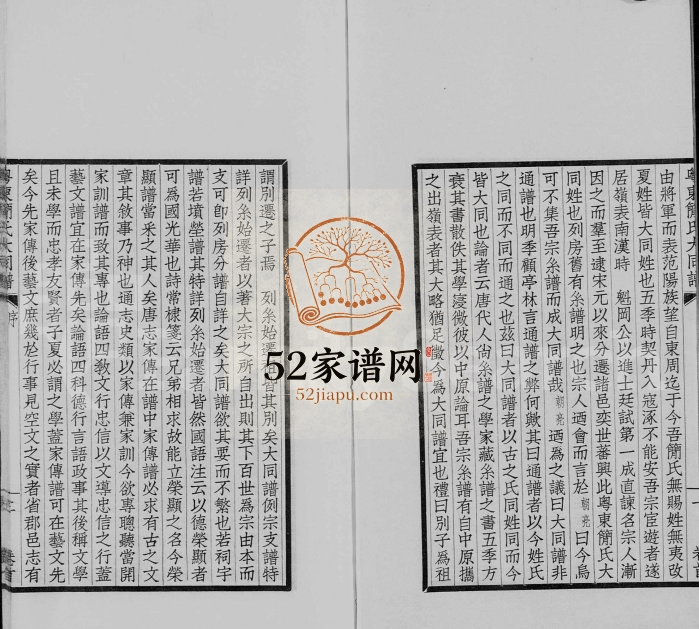 由將軍而表范陽族望自東周迄于今吾簡氏無賜姓無夷改
夏姓皆大同姓也五季時契丹入寇涿不能安吾宗宦遊者遂
居嶺表南漢時 魁岡公以進士廷試第一成直諫名宗人漸
因之而羣至逮宋元以來分遷諸邑奕世蕃興此粵東簡氏大
同姓也列房舊有糸譜明之也宗人迺會而言於 朝亮 曰今烏
可不集吾宗糸譜而成大同譜哉 朝亮 迺爲之議曰大同譜非
通譜也明季顧亭林言通譜之獘何歟其曰通譜者以今姓氏
之同而不同而通之也茲曰大同譜者以古之氏同姓同而今
皆大同也論者云唐代人尙糸譜之學家藏糸譜之書五季方
衰其書散佚其學寖微彼以中原論耳吾宗糸譜有自中原攜
之出嶺表者其大略猶足徵今爲大同譜宜也禮曰別子爲祖
謂別遷之子焉 列糸始遷祖皆其別矣大同譜例宗支譜特
詳列糸始遷者以著大宗之所自出則其下百世爲宗由本而
支可卽列房分譜自詳之矣大同譜欲其要而不繁也若祠宇
譜若墳塋譜其特詳列糸始遷者皆然國語注云以德榮顯者
可爲國光華也詩常棣箋云兄弟相求故能立榮顯之名今榮
顯譜當釆之其人矣唐志家傳在譜中家傳譜必求有古之文
章其敘事乃神也通志史類以家傳兼家訓今欲專聰聽當開
家訓譜而致其專也論語四敎文行忠信以文導忠信之行蓋
藝文譜宜在家傳先矣論語四科德行言語政事其後稱文學
且未學而忠孝友賢者子夏必謂之學蓋家傳譜可在藝文先
矣今先家傳後藝文庶幾於行事見空文之實者省郡邑志有
粵東簡氏大同譜 序
52家谱网
52jiapu.com